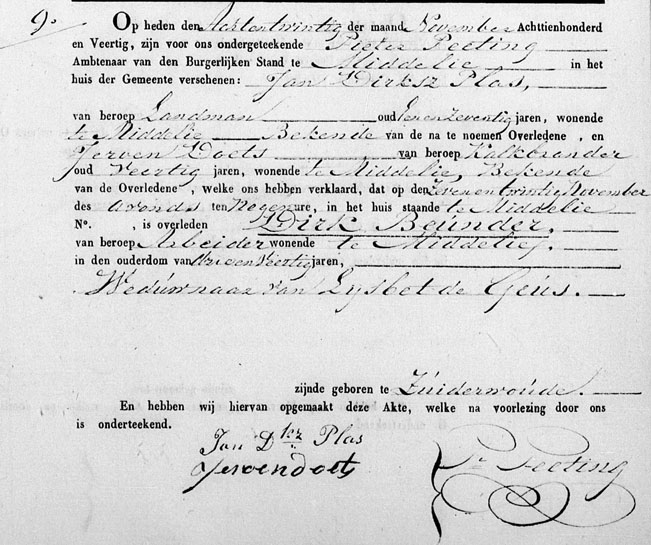 9.
Op heden den Achtentwintig der maand November Achttienhonderd
en Veertig, zijn voor ons ondergeteekende Pieter Peeting
Ambtenaar van den Burgerlijken Stand te Middelie in het
huis der Gemeente verschenen: Jan Dirksz Plas,
van beroep Landman oud Eenenzeventig jaren, wonende
te Middelie Bekende van de na te noemen Overledene, en
Jerven Doets van beroep Kalkbrander
oud Veertig jaren, wonende te Middelie, Bekende
van de Overledene, welke ons hebben verklaard, dat op den Zevenentwintig November
des Avonds ten Negen ure, in het huis staande te Middelie
No. , is overleden Dirk Beunder.
van beroep Arbeider wonende te Middelie.
in den ouderdom van Drieenveertig jaren,
Weduwnaar van Lysbet de Geus.
zijnde geboren te Zuiderwoude.
En hebben wij hiervan opgemaakt deze Akte, welke na voorlezing door ons
is onderteekend.
Jan Dksz Plas
Jerven doets
Pr Peeting